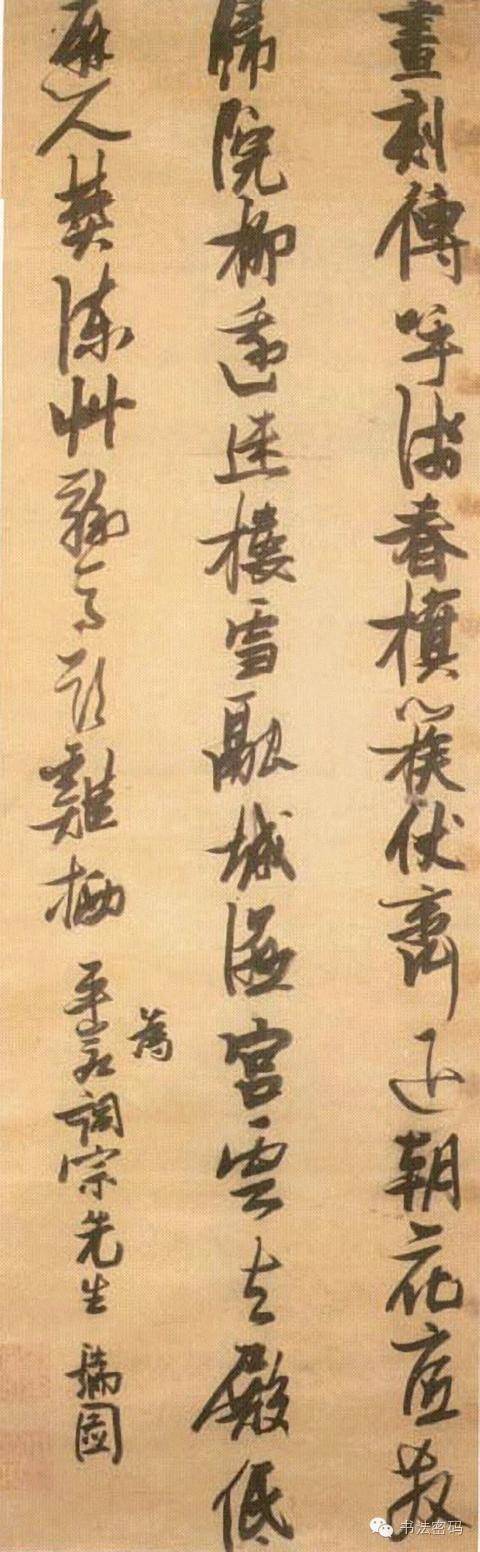 晝刻傳呼淺春旗簇仗齊退朝花底散
歸院柳邊迷樓雪融城濕宮雲去殿低
避人焚諫艸騎馬欲雞栖
為
平詞宗先生 瑞圖
书法密码